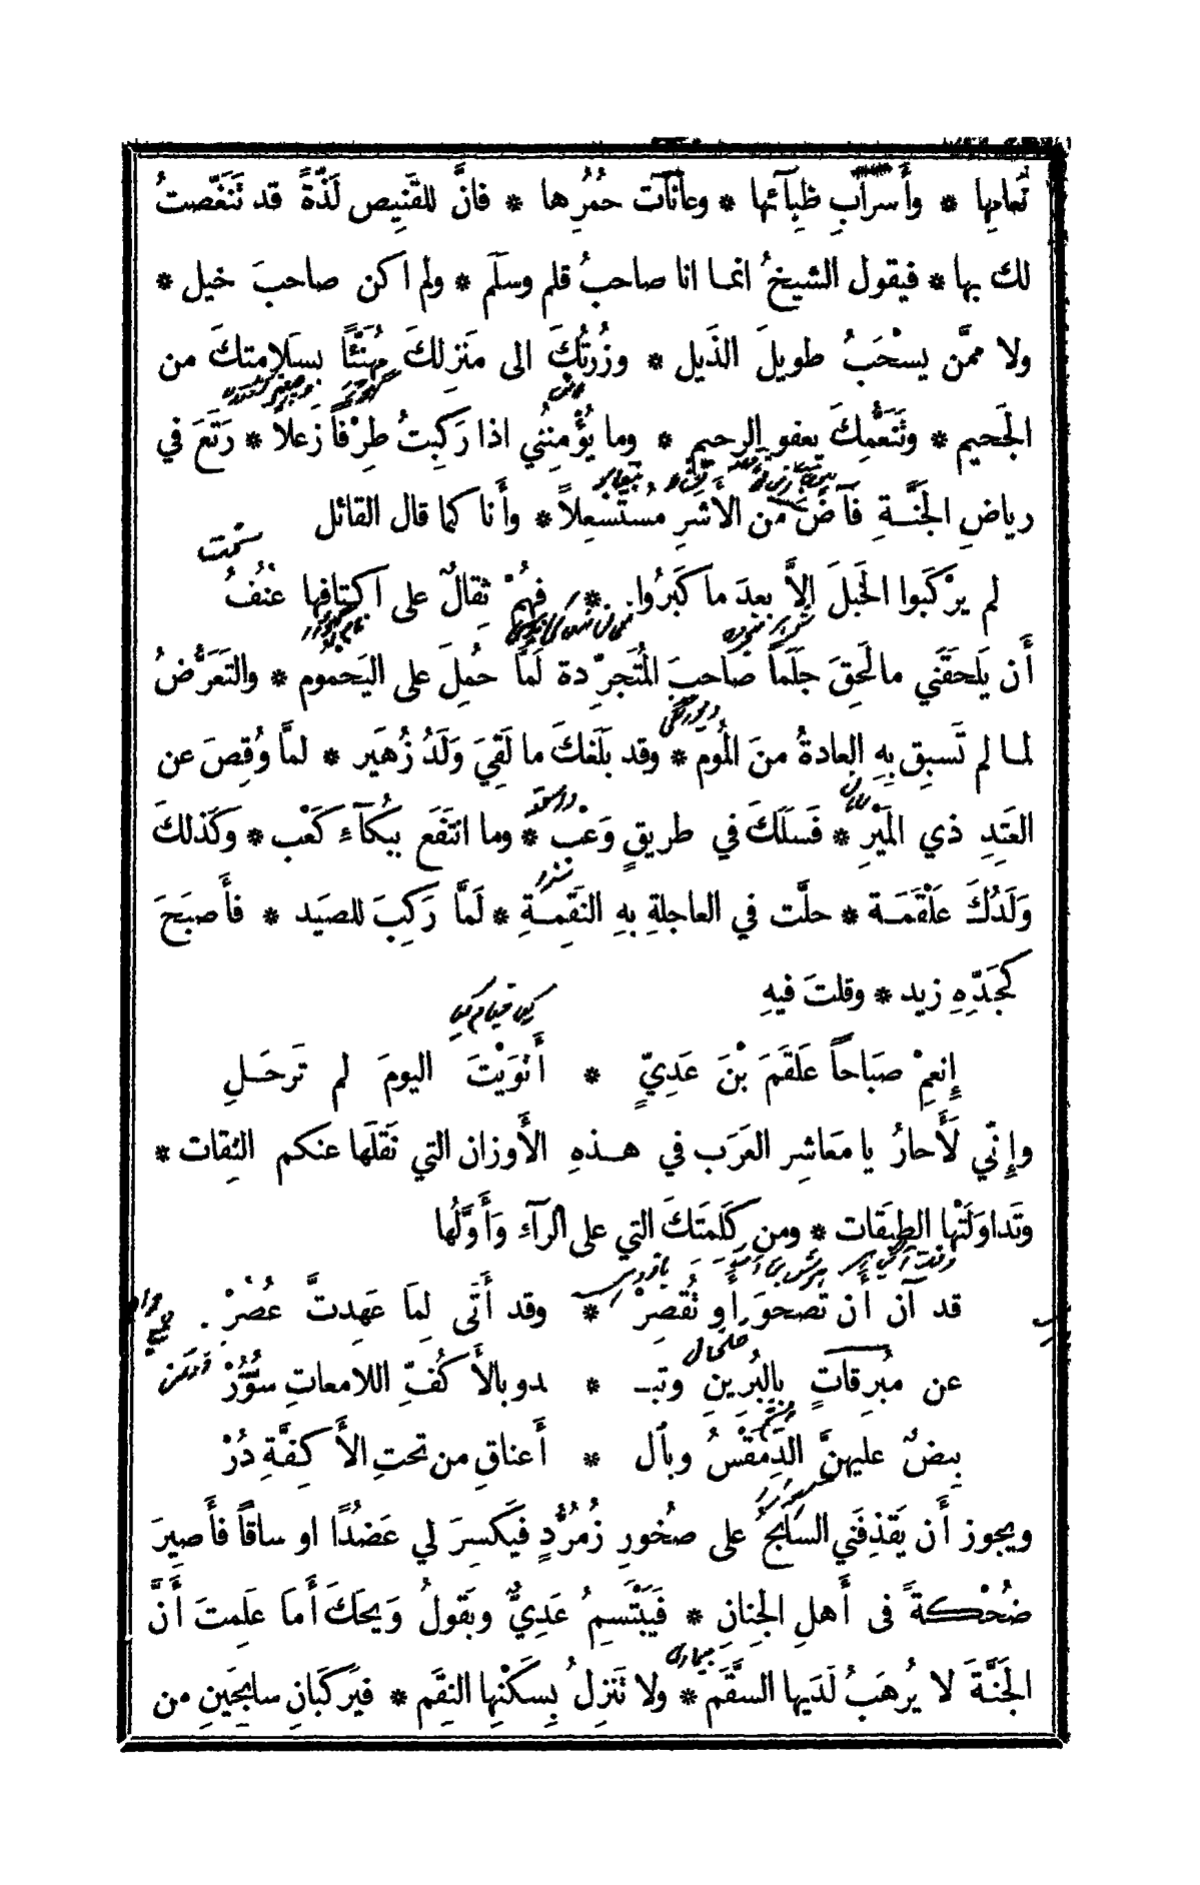 نَعامِها * وأَسرَابِ ظِبَآئها * وعانَآت حُمُرِها * فانَّ للقَنِيص لَذَّةً قد تَنَغَّصتُ
لك بها * فيقول الشيخُ انما انا صاحبُ قلم وسلَم * ولم اكن صاحبَ خيل *
ولا ممَّن يسْحَبُ طويلَ الذَيل * وزُرتُكَ الى مَنزِلكَ مُهَنّئاً بسَلامتكَ من
الجَحيم * وتَنَعُّمِكَ بعفو الرحيم * وما يُؤْمِنُني اذا رَكِبتُ طِرْفاً زَعِلاً * رَتَعَ في
رياضِ الجَنَّةِ فَآضَ من الأَشَرِ مُستَسْعِلاً * وأَنا كما قال القائل
لم يرْكَبوا الخَيلَ إلاَّ بعدَ ما كَبَرُوا * فهُمْ ثِقالٌ على اكتافِها عنُفُ
أَن يَلحَقَني مالَحِقَ جَلَمَاً صَاحبَ المُتَجرّدة لَمَّا حُمِلَ على اليَحموم * والتَعَرُّضُ
لما لم تَسبِق بِهِ العادةُ منَ المُوم * وقد بَلَغكَ ما لَقِيَ وَلَدُ زُهَير * لمَّا وُقِصَ عن
العَتَدِ ذي المَيْرِ * فَسَلَكَ في طريقٍ وَعْب * وما انتَفَع ببُكآءِ كَعْب * وكَذلكَ
وَلَدُكَ عَلْقَمَة * حلَّت في العاجلةِ بهِ النَقِمةِ * لَمَّا رَكِبَ للصَيد * فأَصبَحَ
كجَدّهِ زيد * وقلتَ فيهِ
إنعِمْ صبَاحاً عَلقَمَ بْنَ عَدِيّ * أَثَوَيْتَ اليومَ لم تَرحَلِ
وإنّي لَأَحارُ يا معَاشِر العَرَب في هذهِ الأَوزان التي نَقلَها عنكم الثِقات *
وتَداوَلَتْها الطبَقات * ومن كَلمَتكَ التي على الرآءِ وَأَوَّلُها
قد آن أَن تَصحوَ أَو تُقصِرْ * وقد أَتَى لِمَا عَهِدتَّ عُصُرْ
عن مُبرِقاتٍ بالبُرِينِ وتبـ * ـدو بالأَكُفّ اللامعاتِ سوُرْ
بِيضٌ عليهنَّ الدِمَقْسُ وبٱل * أَعناقِ من تحتِ الأَكِفَّةِ دُرْ
ويجوز أَن يَقذِفَني السابحُ على صُخورِ زُمُرُّدٍ فيَكسِرَ لي عَضُدًا او ساقاً فأَصِيرَ
ضُحْكةً فى أَهلِ الجِنانِ * فَيَبْتَسِمُ عَدِيٌّ ويَقولُ وَيحَكَ أَمَا عَلِمتَ أَنَّ
الجَنَّةَ لا يُرهَبُ لَدَيها السَّقَم * ولا تَنزِلُ بِسَكْنِها النِقَم * فيَركَبانِ سابِحَينِ من